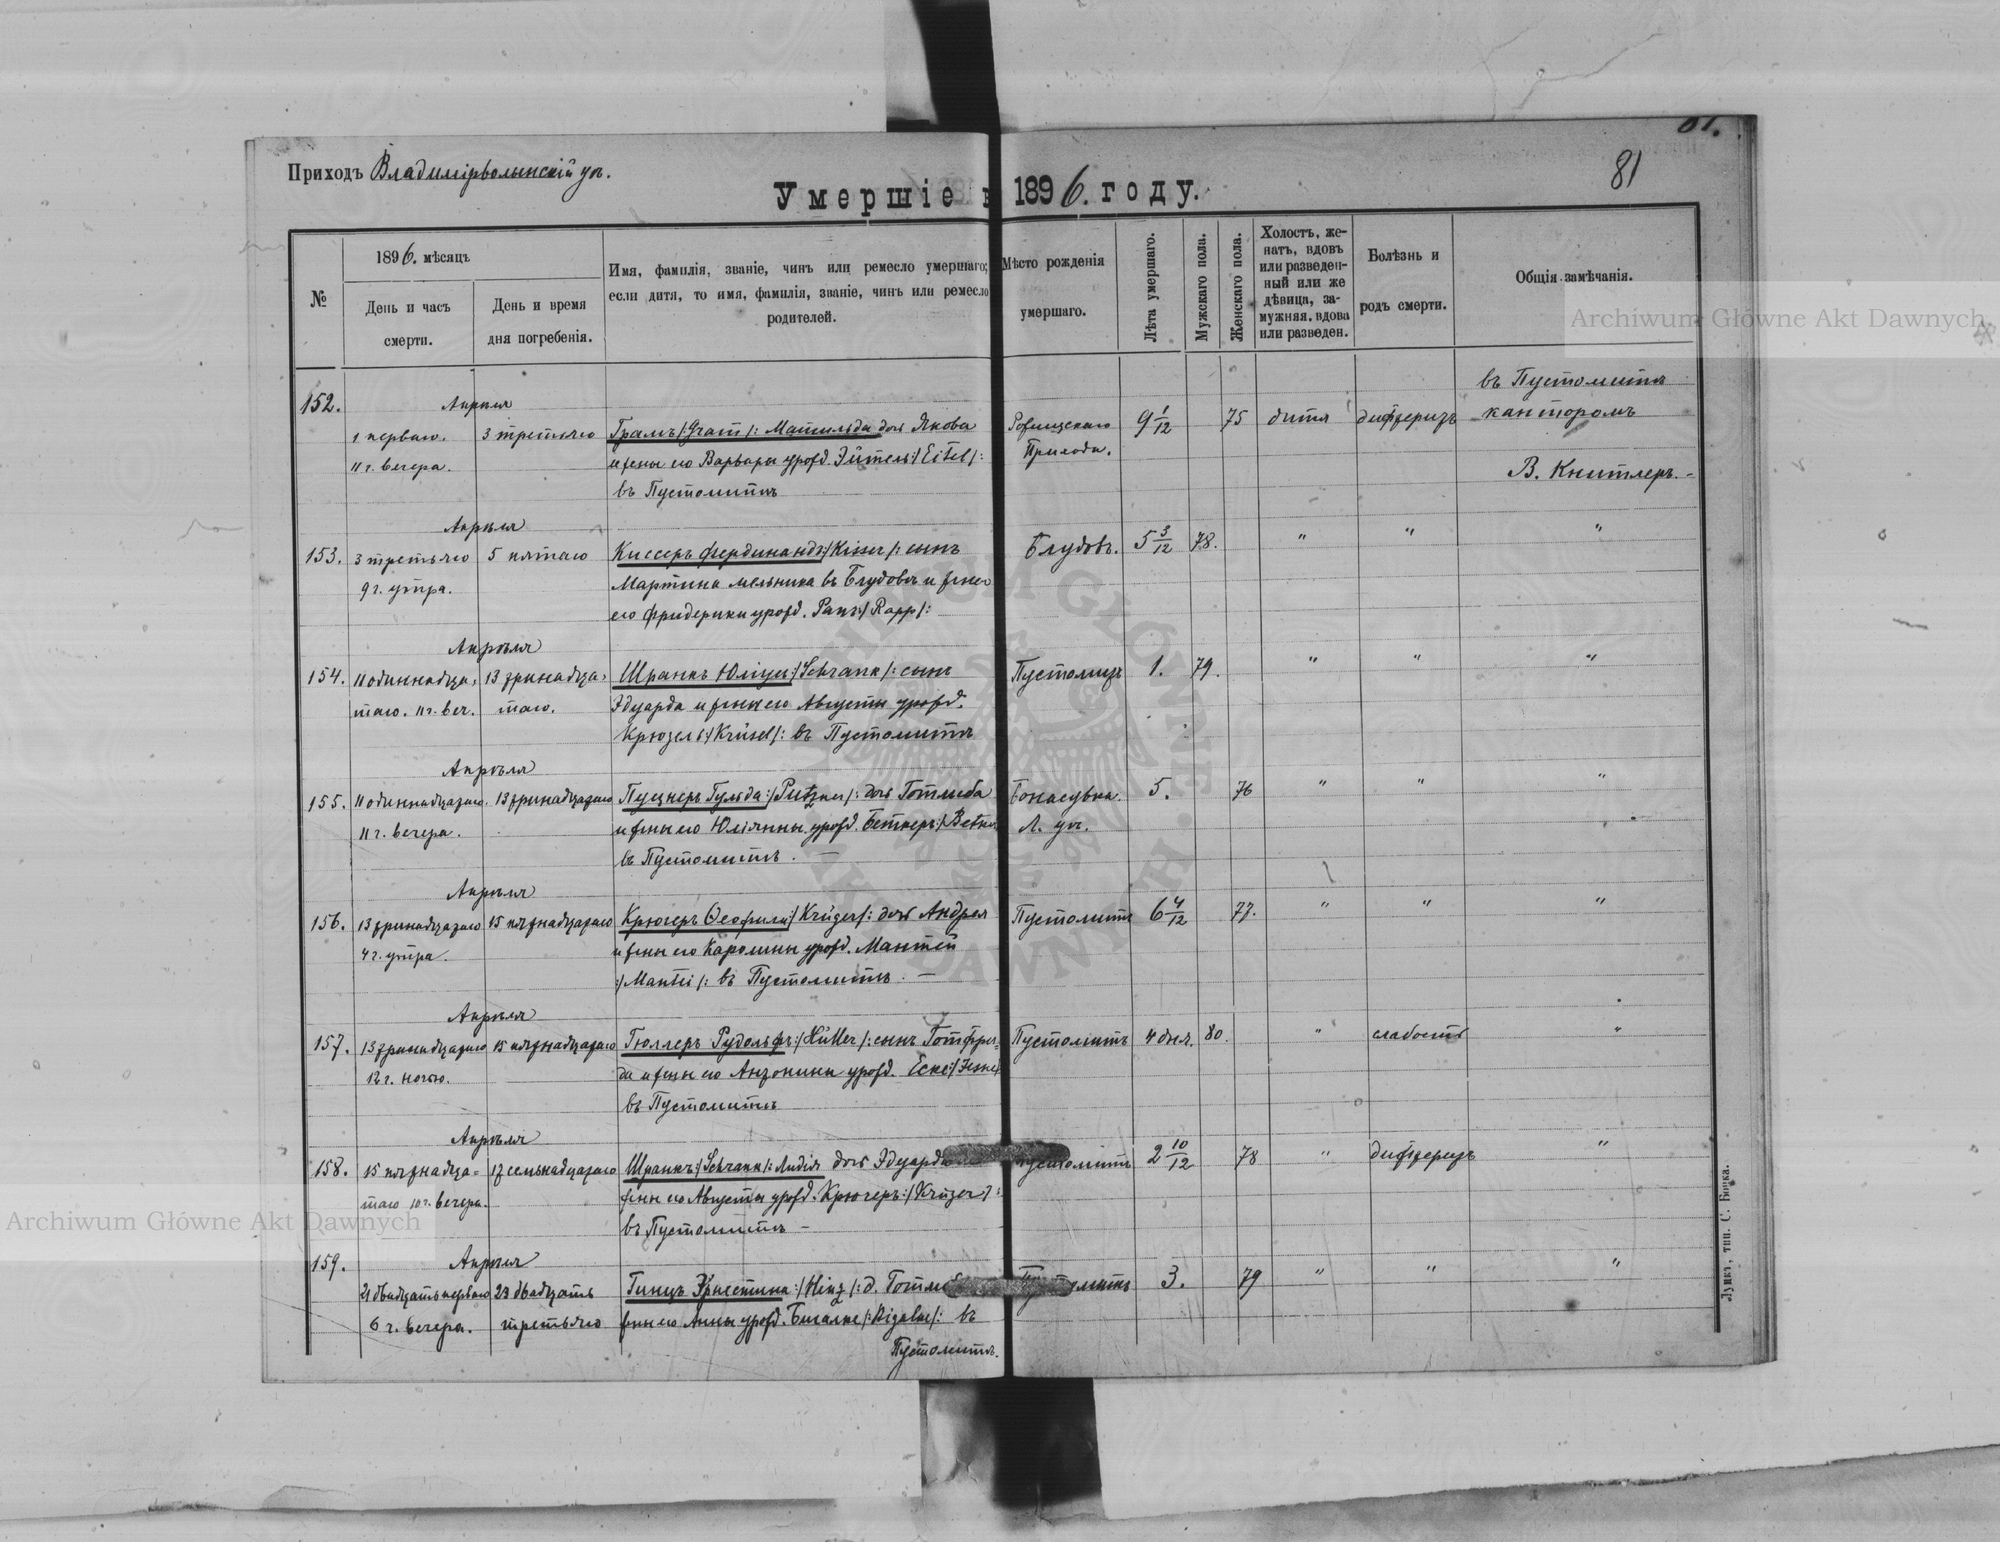 81.
81
Приходъ Владимірволынскій уѣ.
Умершіе в 1896. году.
№
1896. мѣсяцъ
День и часъ смерти.
День и время дня погребенія.
Имя, фамилія, званіе, чинъ или ремесло умершаго;
если дитя, то имя, фамилія, званіе, чинъ или ремесло
родителей.
Мѣсто рожденія
умершаго.
Лѣта умершаго.
Мужскаго пола.
Женскаго пола.
Холостъ, же-
натъ, вдовъ
или разведен-
ный или же
дѣвица, за-
мужняя, вдова
или разведен.
Болѣзнь и
родъ смерти.
Общія замѣчанія.
Archiwum Główne Akt Dawnych
152.
Апрѣля
1 перваго.
11 г. вечера.
3 третьяго
Грамъ /:Gram/: Матильда дочь Якова
и жены его Варвары урожд. Эйтель :/Eitel/:
въ Пустомитѣ
Рожищскаго
Прихода.
9 1/12
75
дитя
дифтеритъ
въ Пустомитѣ
канторомъ
В. Книтлеръ.-
Апрѣля
153.
3 третьяго
9 г. утра.
5 пятаго
Киссеръ Фердинандъ :/Kisser/: сынъ
Мартина мельника въ Блудовѣ и жены
его Фридерики урожд. Рапъ :/Rapp/:
Блудовъ.
5 3/12
78.
"
"
"
Апрѣля
154.
11 одиннадца-
таго. 11 г. веч.
13 тринадца-
таго.
Шранкъ Юліусъ :/Schrank/: сынъ
Эдуарда и жены его Августы урожд.
Крюзель :/Krüsel/: въ Пустомитѣ
Пустомитъ
1.
79.
"
"
"
Апрѣля
155.
11 одиннадцатаго.
11 г. вечера.
13 тринадцатаго
Пуцнеръ Гульда :/Putzner/: дочь Готлиба
и жены его Юліянны урожд. Беткеръ :/Betker
въ Пустомитѣ. —
Л. уѣ.
5.
76
"
"
"
Апрѣля
156.
13 тринадцатаго
4 г. утра.
15 пятнадцатаго
Крюгеръ Өеофила :/Krüger/: дочь Андрея
и жены его Каролины урожд. Мантей
:/Mantei/: въ Пустомитѣ. —
Пустомитъ
6 4/12
77.
"
"
"
Апрѣля
157.
13 тринадцатаго
12 г. ночью.
15 пятнадцатаго
Гюллеръ Рудольфъ :/Hüller/: сынъ Готфри-
да и жены его Антонины урожд. Еске :/Jeske
въ Пустомитѣ
Пустомитъ
4 дня.
80.
"
слабость
"
Апрѣля
158.
15 пятнадца-
таго 10 г. вечера.
17 семьнадцатаго
Шранкъ :/Schrank/: Лидія дочь Эдуарда
жены его Августы урожд. Крюгеръ :/Krüger/:
въ Пустомитѣ —
2 10/12
78
"
дифтеритъ
"
159.
Апрѣля
21 двадцать перваго
6 г. вечера.
23 двадцать
третьяго
Гинцъ Эрнестина :/Hinz/: д.
жены его Анны урожд. Бигалке /:Bigalke/: въ
Пустомитѣ.
3.
79
"
"
"
Луцкъ, тип. С. Бонка.
Archiwum Główne Akt Dawnych
ARCHIWUM GŁÓWNE AKT DAWNYCH